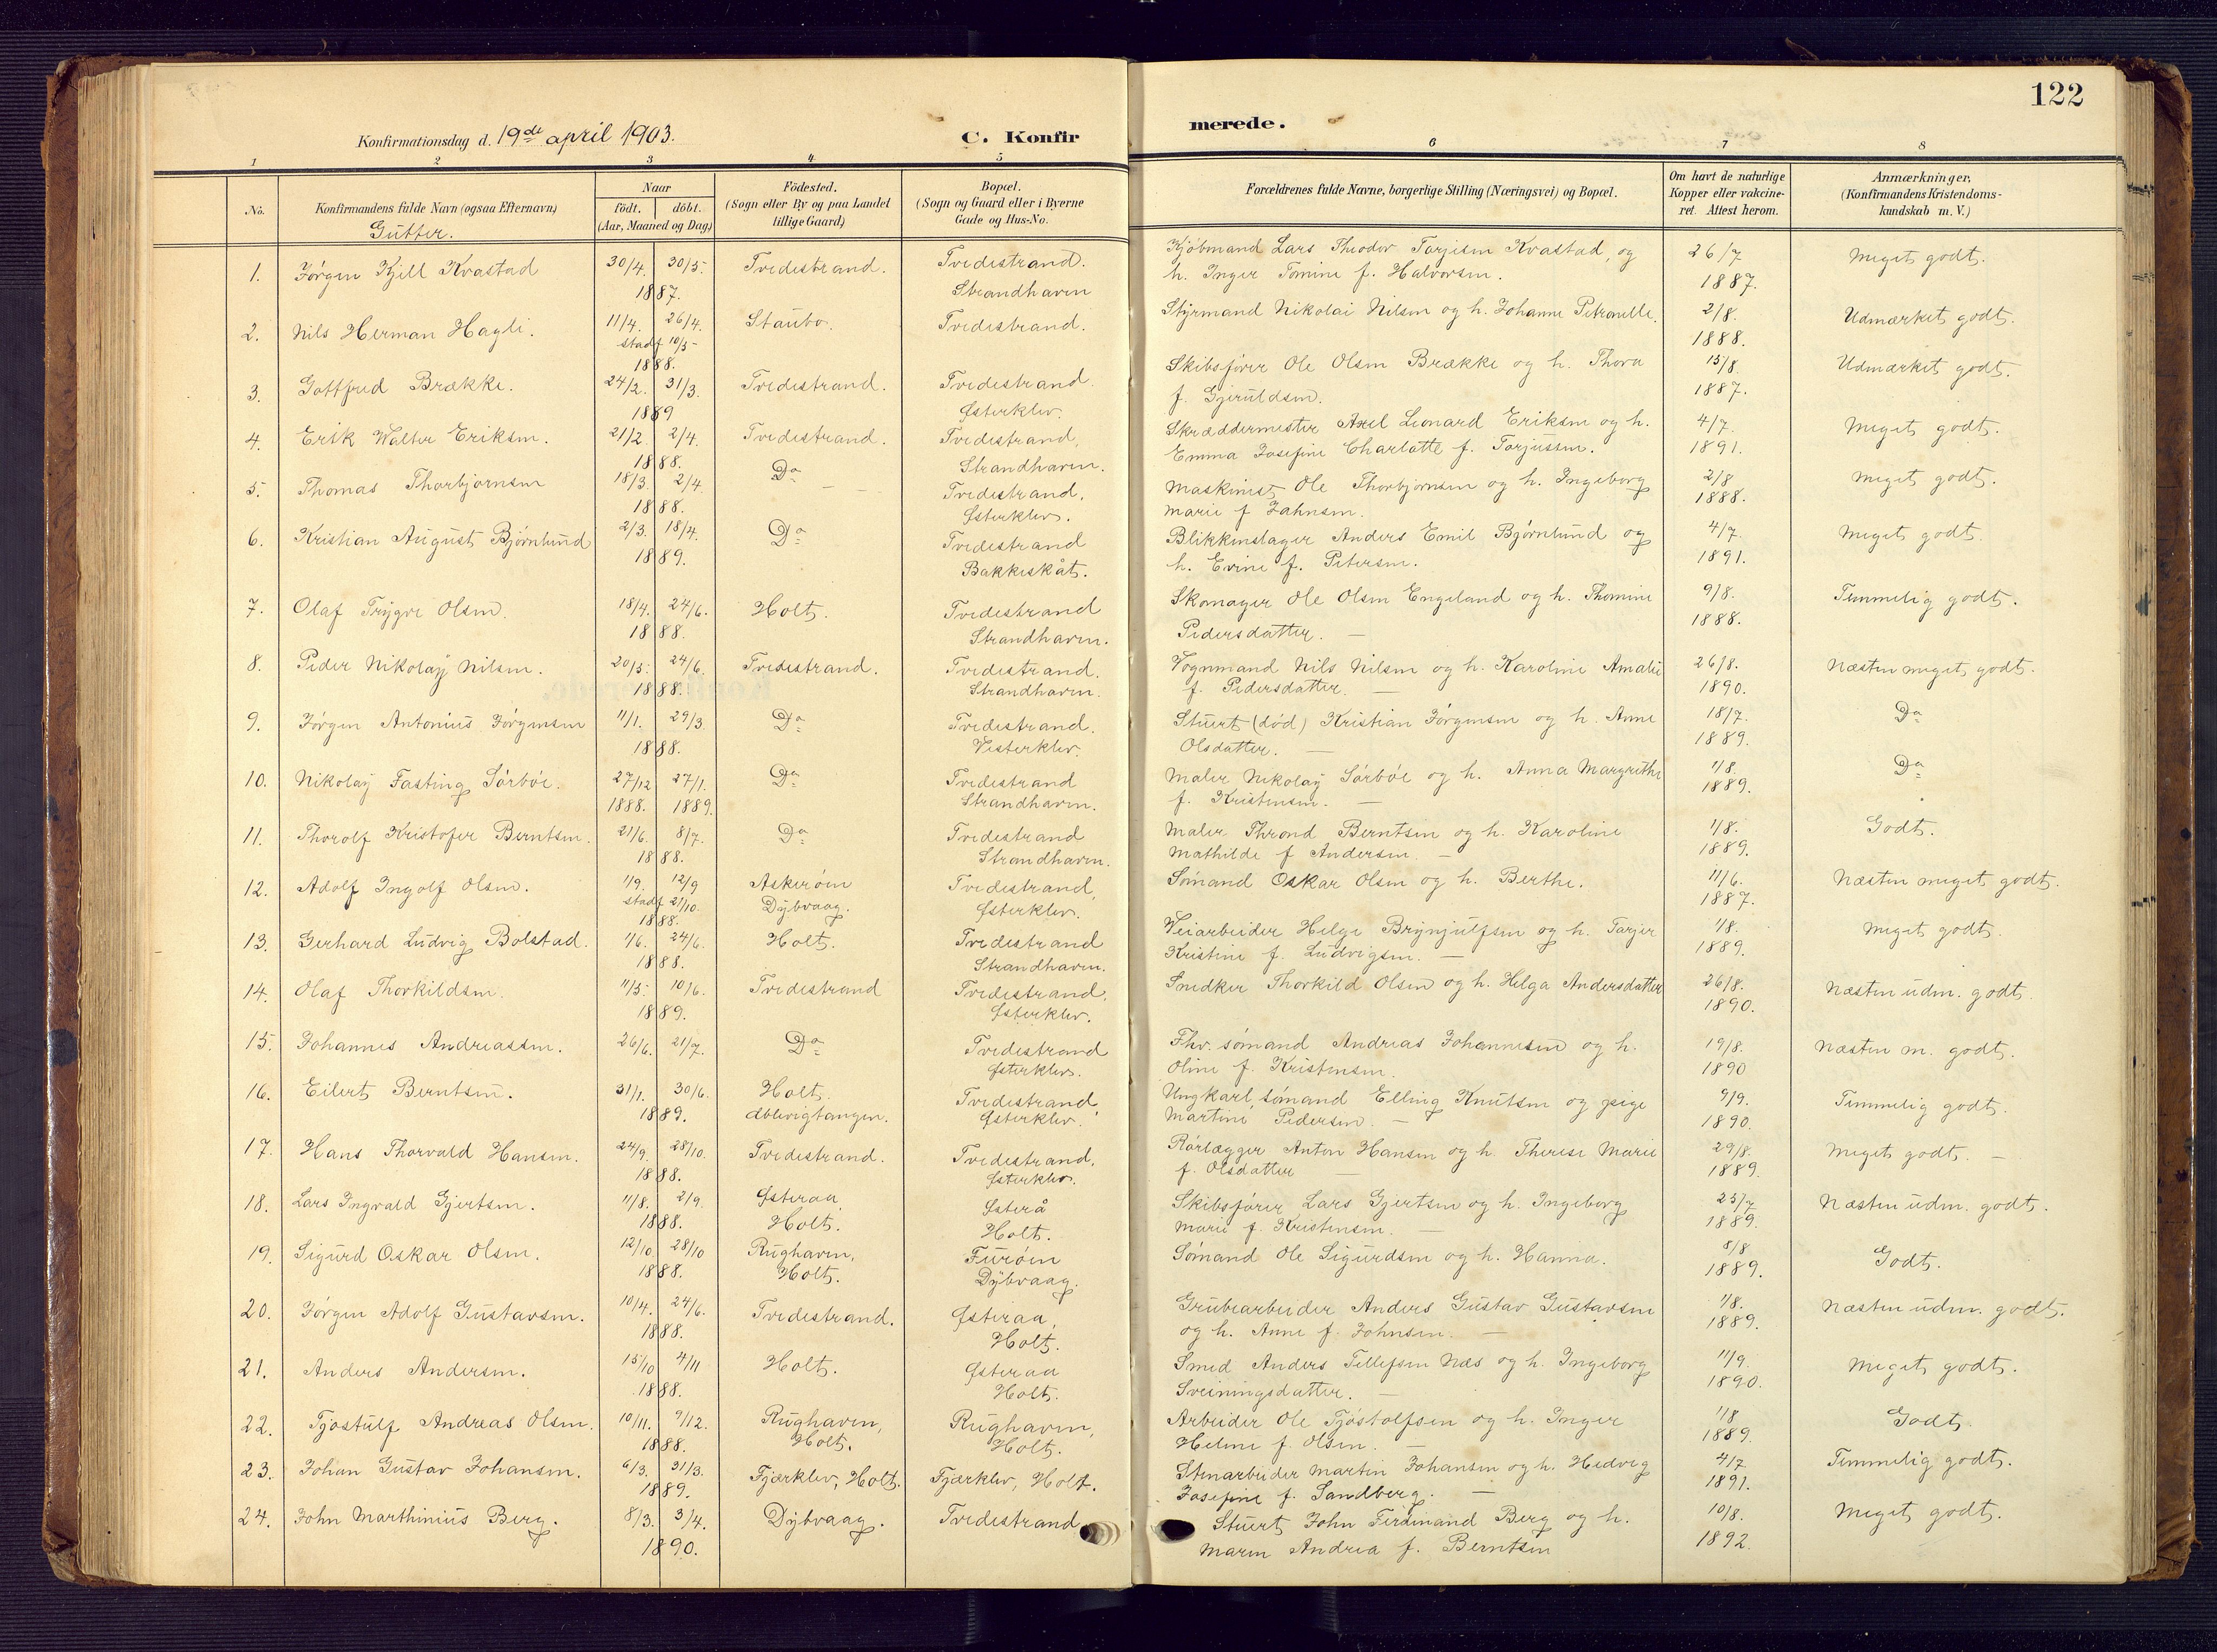 122
Konfirmationsdag d. 19de april 1903.
C. Konfir
merede.
1 2 3 4 5 6 7 8
No.
Konfirmandens fulde Navn (ogsaa Efternavn)
Gutter.
Naar
födt. döbt.
(Aar, Maaned og Dag)
Födested.
(Sogn eller By og paa Landet
tillige Gaard)
Bopæl.
(Sogn og Gaard eller i Byerne
Gade og Hus-No.
Forældrenes fulde Navne, borgerlige Stilling (Næringsvei) og Bopæl.
Om havt de naturlige
Kopper eller vakcine-
ret. Attest herom.
Anmærkninger,
(Konfirmandens Kristendoms-
kundskab m. V.)
1. Jörgen Kjell Kvastad 30/4. 30/5. Tvedestrand. Tvedestrand. Kjöbmand Lars Theodor Tarjesen Kvastad, og 26/7 Meget godt.
1887. Strandhaven h. Inger Tomine f. Halvorsen. 1887.
2. Nils Herman Hagli. 11/4. 26/4. Staubo. Tvedestrand. Styrmand Nikolai Nilsen og h. Johanne Petronelle. 2/8. Udmærket godt.
stadf 10/5 1888.
1888.
3. Gottfred Brække. 24/2. 31/3. Tvedestrand. Tvedestrand. Skibsförer Ole Olsen Brække og h. Thora 15/8. Udmærket godt.
1889 Østerklev. f. Gjeruldsen. 1887.
4. Erik Walter Eriksen. 21/2. 2/4. Tvedestrand. Tvedestrand, Skræddermester Axel Leonard Eriksen og h. 4/7. Meget godt.
1888. Strandhaven. Emma Josefine Charlotte f. Torjussen. 1891.
5. Thomas Thorbjörnsen 18/3. 2/4. Do Tvedestrand, Maskinist Ole Thorbjörnsen og h. Ingeborg 2/8 Meget godt.
1888. Østerklev. Marie f. Jahnsen. 1888.
6. Kristian August Björnlund 2/3. 18/4. Do Tvedestrand Blikkenslager Anders Emil Björnlund og 4/7. Meget godt.
1889. Bakkeskåt. h. Evine f. Petersen. 1891.
7. Olaf Trygve Olsen. 18/4. 24/6. Holt. Tvedestrand Skomager Ole Olsen Engeland og h. Thomine 9/8. Temmelig godt.
1888. Strandhaven. Pedersdatter. 1888.
8. Peder Nikolay Nilsen. 20/5. 24/6. Tvedestrand. Tvedestrand. Vognmand Nils Nilsen og h. Karoline Amalie 26/8. Næsten meget godt.
1888. Strandhaven. f. Pedersdatter. 1890.
9. Jörgen Antonius Jörgensen 11/1. 29/3. Do Tvedestrand. Stuert (död) Kristian Jörgensen og h. Anne 18/7. Do
1888. Vesterklev. Olsdatter. 1889.
10. Nikolay Fasting Sörböe. 27/12 27/1. Do Tvedestrand Maler Nikolay Sörböe og h. Anna Margrethe 1/8. Do
1888. 1889. Strandhaven. f. Kristensen. 1889.
11. Thorolf Kristofer Berntsen. 21/6. 8/7. Do Tvedestrand Maler Thrond Berntsen og h. Karoline 1/8. Godt.
1888. Strandhaven. Mathilde f Andersen. 1889.
12. Adolf Ingolf Olsen. 1/9. 12/9 Askeröen Tvedestrand, Sömand Oskar Olsen og h. Berthe. 11/6. Næsten meget godt.
stadf 21/10. Dybvaag. Østerklev. 1887.
1888.
13. Gerhard Ludvig Bolstad. 1/6. 24/6. Holt. Tvedestrand Veiarbeider Helge Brynjulfsen og h. Tarjer 1/8. Meget godt.
1888. Strandhaven. Kristine f. Ludvigsen. 1889.
14. Olaf Thorkildsen. 11/5. 10/6. Tvedestrand Tvedestrand, Snedker Thorkild Olsen og h. Helga Andersdatter 26/8. Næsten udm. godt.
1889. Østerklev. 1890.
15. Johannes Andreassen. 26/6. 21/7. Do Tvedestrand Fhv. sömand Andreas Johannesen og h. 19/8. Næsten m. godt.
Østerklev. Oline f. Kristensen. 1890
16. Eilert Berntsen. 31/1. 30/6. Holt. Tvedestrand, Ungkarl sömand Elling Knutsen og pige 9/9. Temmelig godt.
1889. Østerklev. Martine Pedersen. 1890.
17. Hans Thorvald Hansen. 24/9. 28/10. Tvedestrand. Tvedestrand, Rörlægger Anton Hansen og h. Therese Marie 29/8. Meget godt.
1888. Østerklev. f. Olsdatter 1889.
18. Lars Ingvald Gjertsen. 11/8. 2/9. Østeraa, Østerå Skibsförer Lars Gjertsen og h. Ingeborg 25/7 Næsten udm. godt.
1888. Holt. Holt. Marie f. Kristensen. 1889.
19. Sigurd Oskar Olsen. 12/10. 28/10 Rughaven, Furöen Sömand Ole Sigurdsen og h. Hanna. 8/8 Godt.
1888. Holt. Dybvaag. 1889.
20. Jörgen Adolf Gustavsen. 10/4. 24/6. Tvedestrand. Østeraa, Grubearbeider Anders Gustav Gustavsen 1/8. Næsten udm. godt.
1888. Holt. og h. Anne f. Johnsen. 1889.
21. Anders Andersen. 15/10 4/11 Holt. Østeraa Smed Anders Tellefsen Næs og h. Ingeborg 11/9. Meget godt.
1888. Holt. Sveiningsdatter. 1890.
22. Tjostulf Andreas Olsen. 10/11. 9/12. Rughaven, Rughaven, Arbeider Ole Tjöstolfsen og h. Inger 1/8 Godt.
1888. Holt. Holt. Heline f. Olsen. 1889.
23. Johan Gustav Johansen. 6/3. 31/3. Fjærklev, Holt. Fjærklev, Holt. Stenarbeider Martin Johansen og h. Hedvig 4/7 Temmelig godt.
1889. Josefine f. Sandberg. 1891.
24. John Marthinius Berg. 8/3. 3/4. Dybvaag. Tvedestrand Stuert John Ferdinand Berg og h. 10/8. Meget godt.
1890. Maren Andrea f. Berntsen 1892.